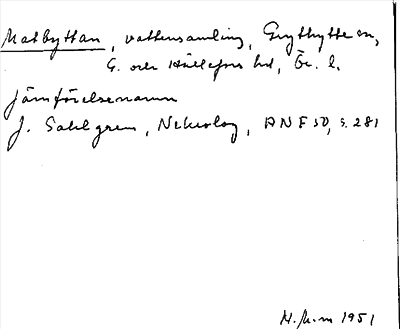 Matbyttan, vattensamling, Grythytte sn,
G. och Hällefors hd, Ör. l.
Jämförelsenamn
J. Sahlgren, Nekrolog, ANF 50, s. 281
N.
1951